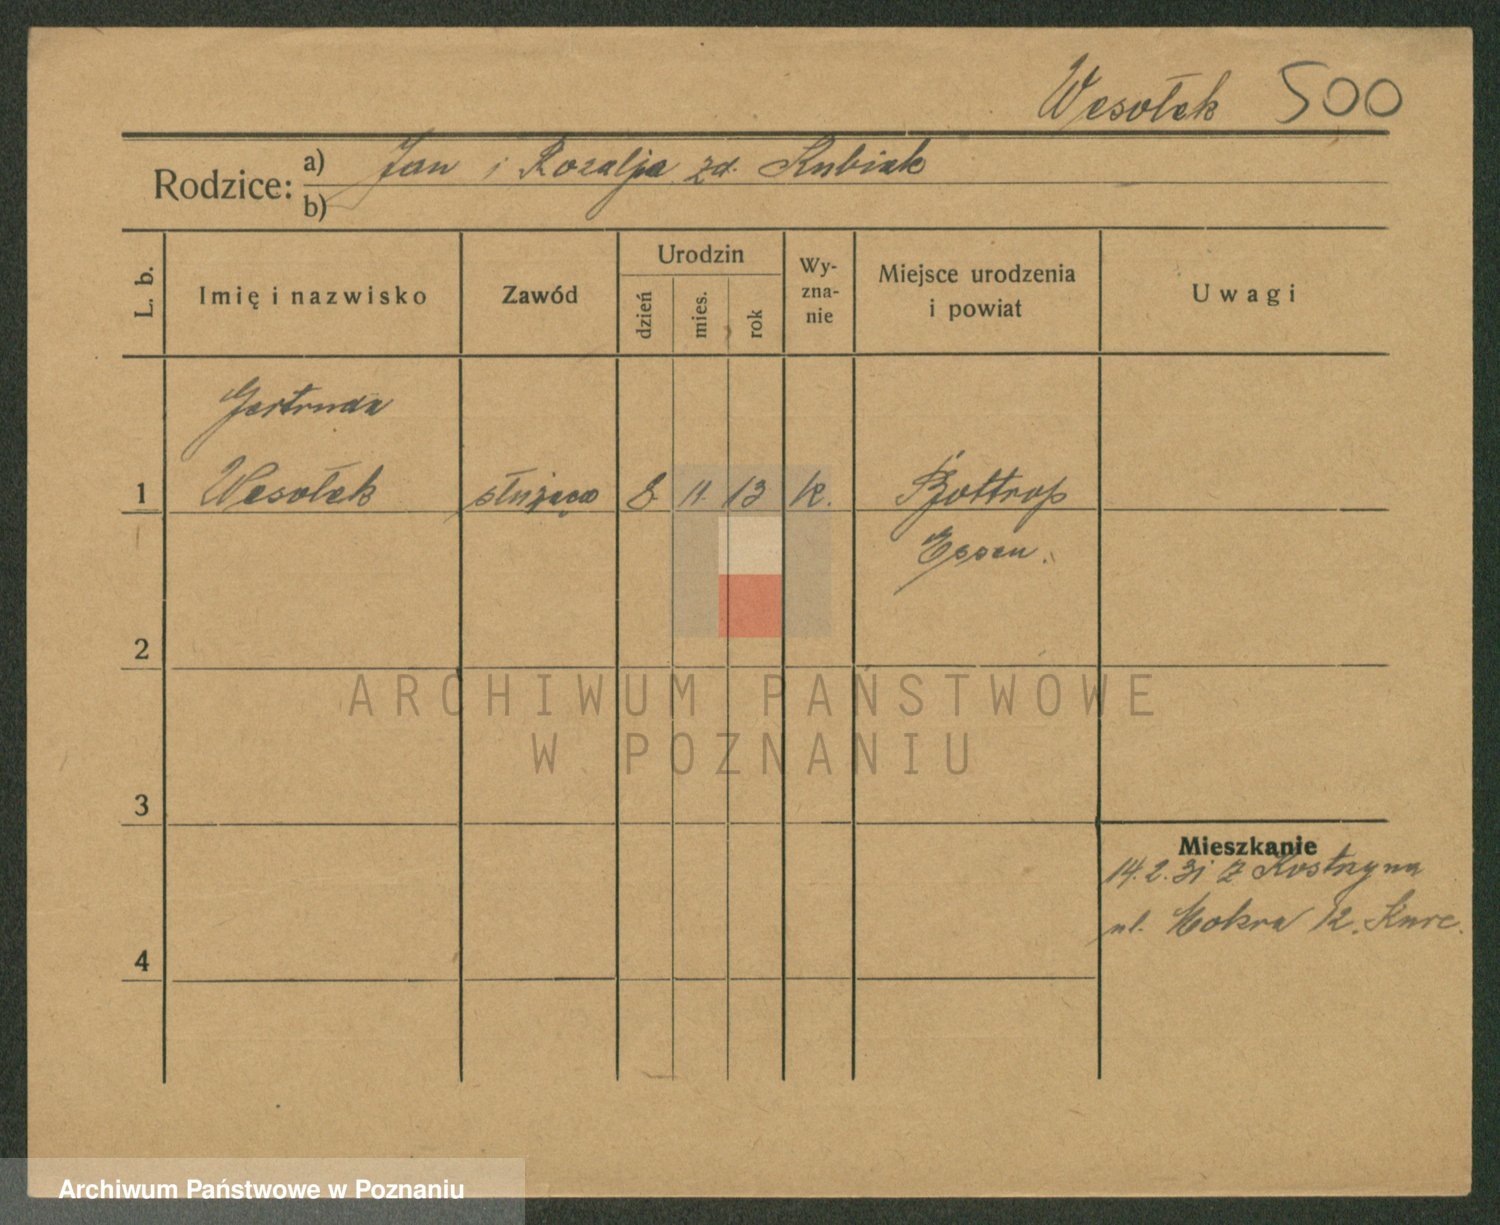 Wesołek 500
Rodzice: a) Jan i Rozalja zd. Kubiak
b)
L. b. Imię i nazwisko Zawód Urodzin dzień mies. rok Wy-zna-nie Miejsce urodzenia i powiat Uwagi
Gertruda
1 Wesołek służąca 8. 11. 13 k. Bottrop
Essen.
2
ARCHIWUM PAŃSTWOWE
W POZNANIU
3
Mieszkanie
14.2.31 z Kostrzyna
ul. Mokra 12.
4
Archiwum Państwowe w Poznaniu